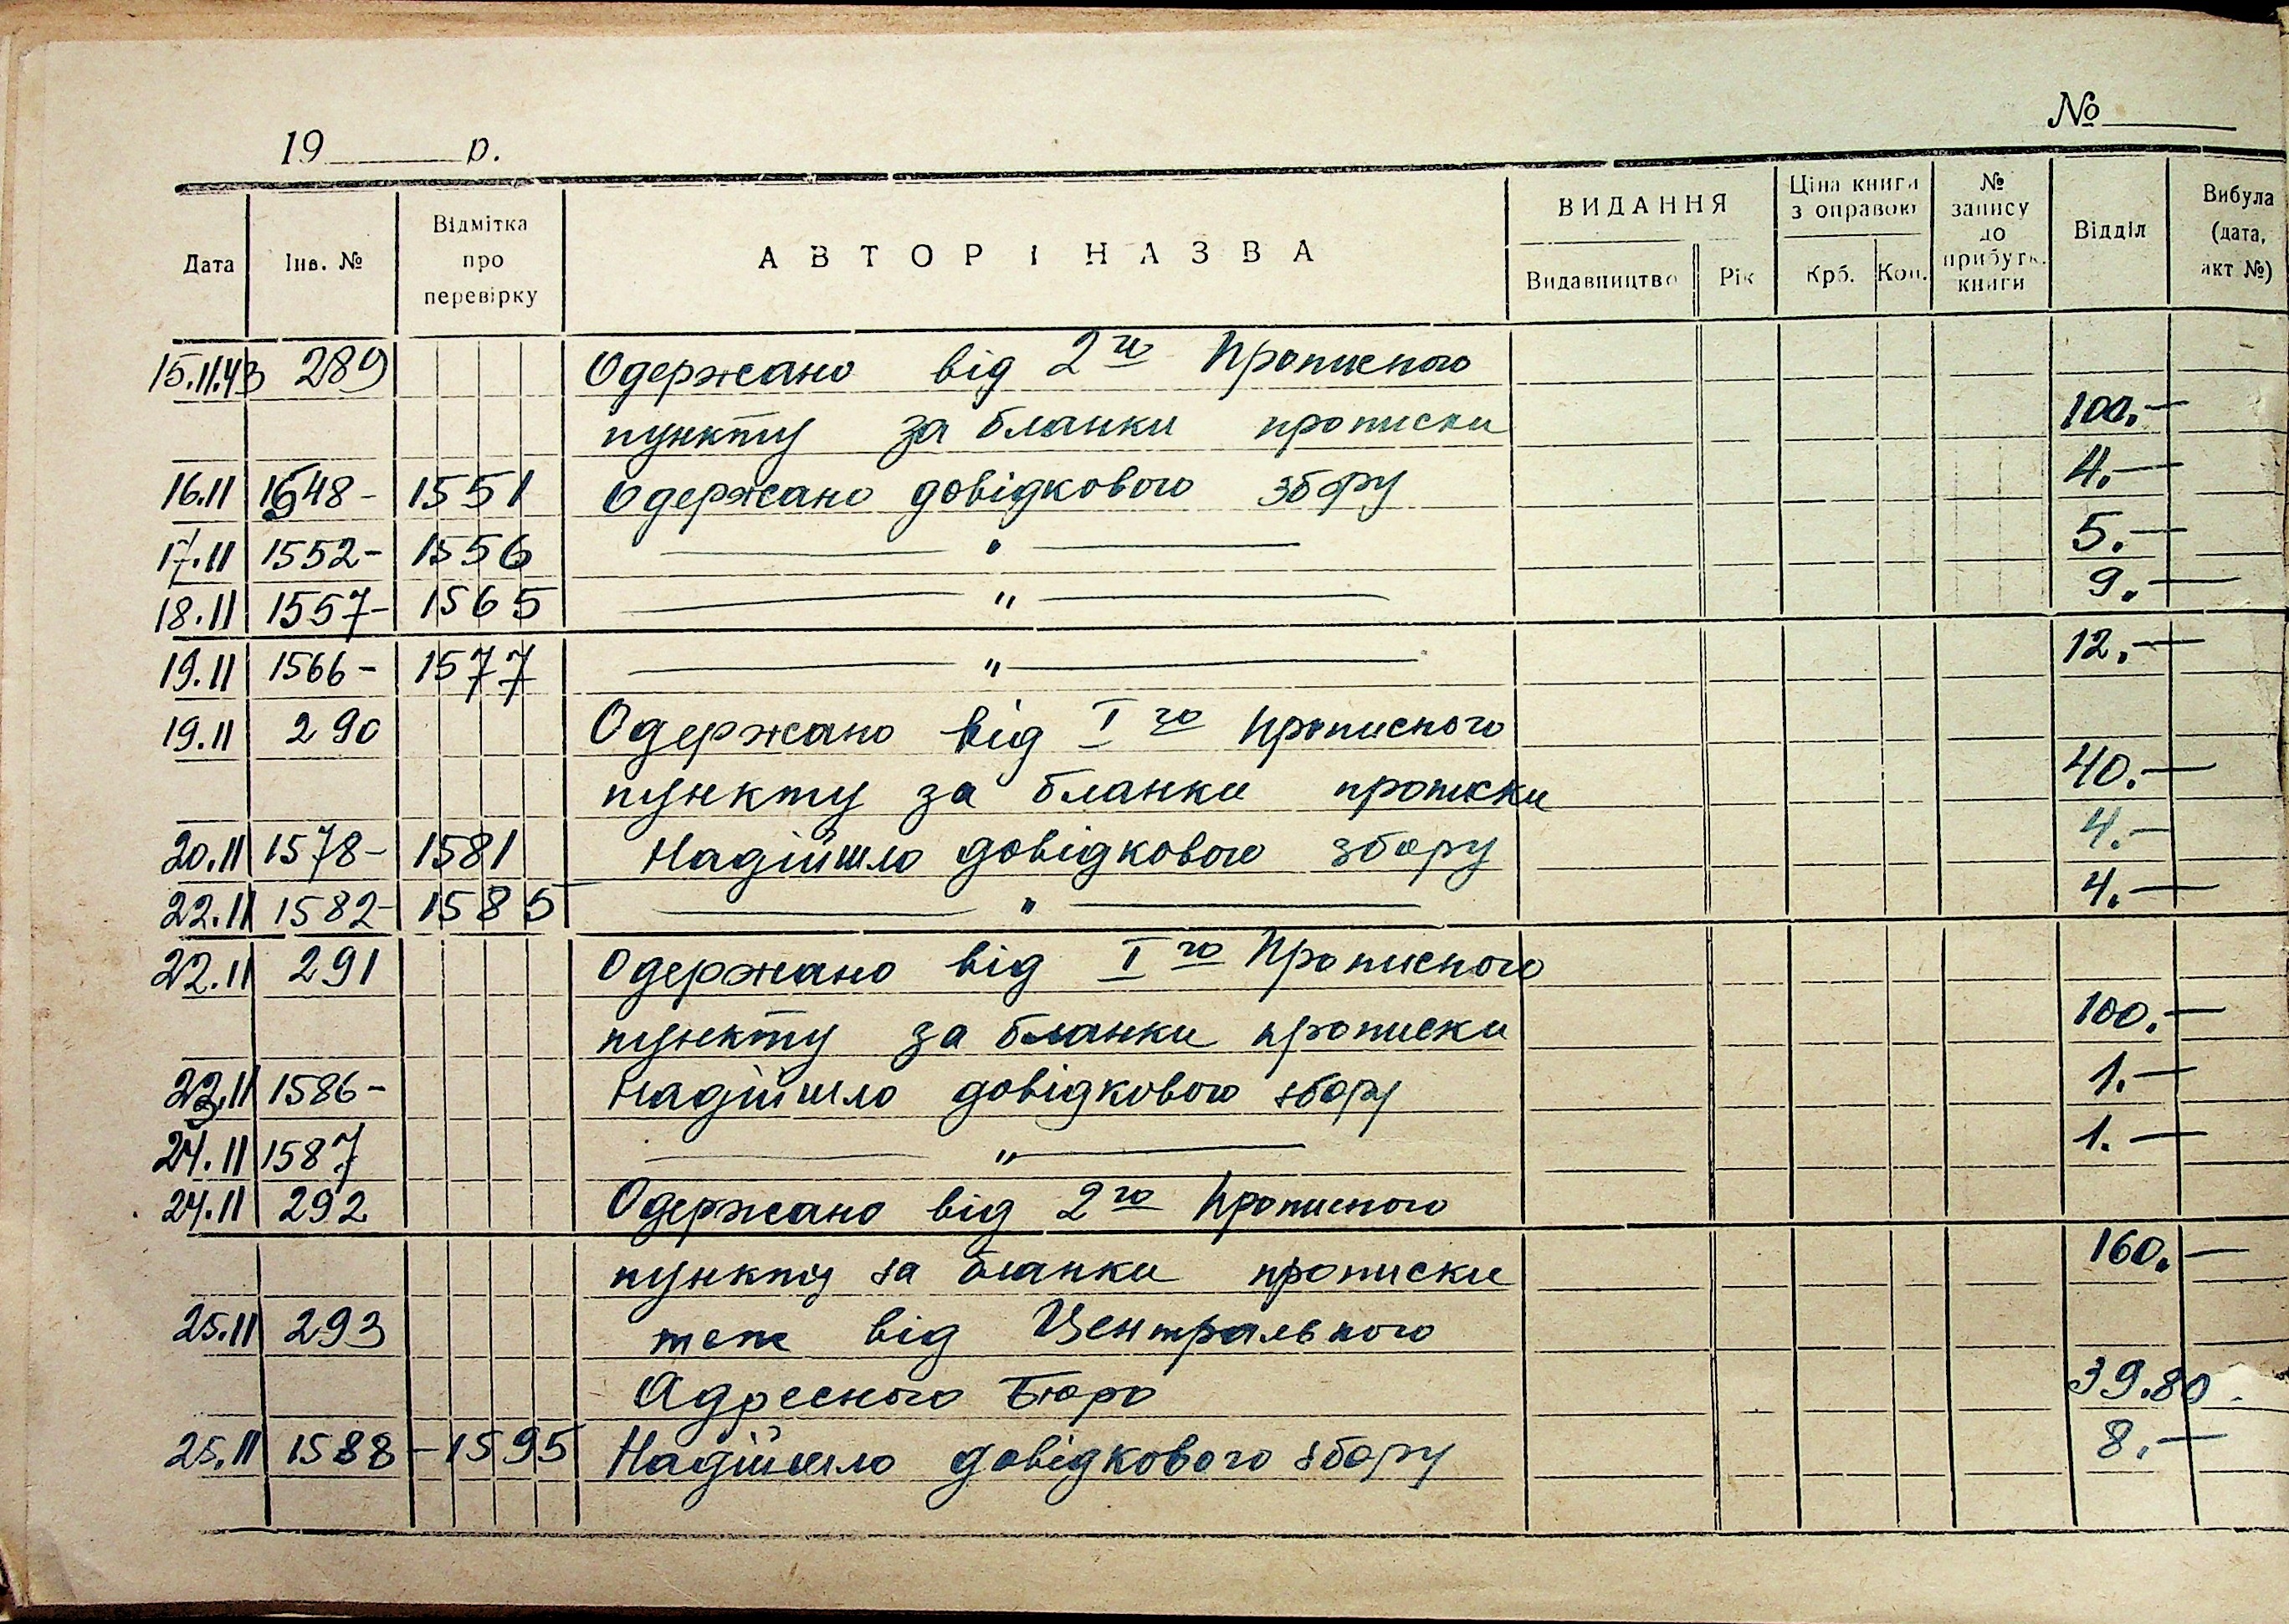 19 р. №
Дата Інв. № Відмітка про перевірку АВТОР І НАЗВА ВИДАННЯ Видавництво Рік Ціна книги з оправою Крб. Коп. № запису до прибутк. книги Відділ Вибула (дата, акт №)
15.11.43 289 Одержано від 2го Прописного
пункту за бланки прописки 100.—
16.11 1548- 1551 Одержано довідкового збору 4.—
17.11 1552- 1556 — " — 5.—
18.11 1557- 1565 — " — 9.—
19.11 1566- 1577 — " — 12.—
19.11 290 Одержано від I го прописного
пункту за бланки прописки 40.—
20.11 1578- 1581 Надійшло довідкового збору 4.—
22.11 1582- 1585 — " — 4.—
22.11 291 Одержано від I го Прописного
пункту за бланки прописки 100.—
23.11 1586- Надійшло довідкового збору 1.—
24.11 1587 — " — 1.—
24.11 292 Одержано від 2го прописного
пункту за бланки прописки 160.—
25.11 293 теж від Центрального
Адресного Бюро 39.80
25.11 1588 -1595 Надійшло довідкового збору 8.—